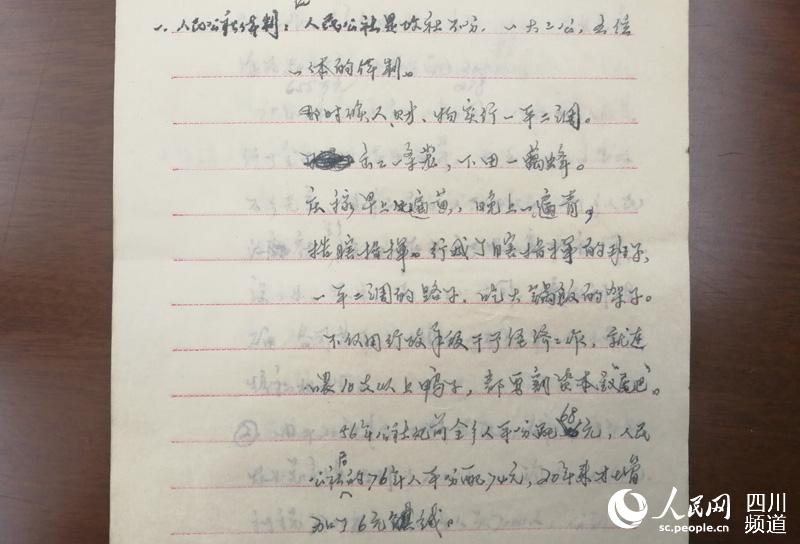 一、人民公社体制：人民公社是政社不分，一大二公，三位
一体的体制。
那时候人、财、物实行一平二调。
出工一条龙，下田一窝蜂。
庄稼早上一遍黄，晚上一遍青，
搞瞎指挥。行成了瞎指挥的班子，
一平二调的路子，吃大锅饭的架子。
不仅用行政手段干予经济工作，就连
喂10支以上鸭子，都要割资本主义尾巴。
56年公社化前全乡人平分配68元，人民
公社后的76年人平分配74元，20年来才增
加了6元钱。
人民网 四川
sc.people.cn 频道